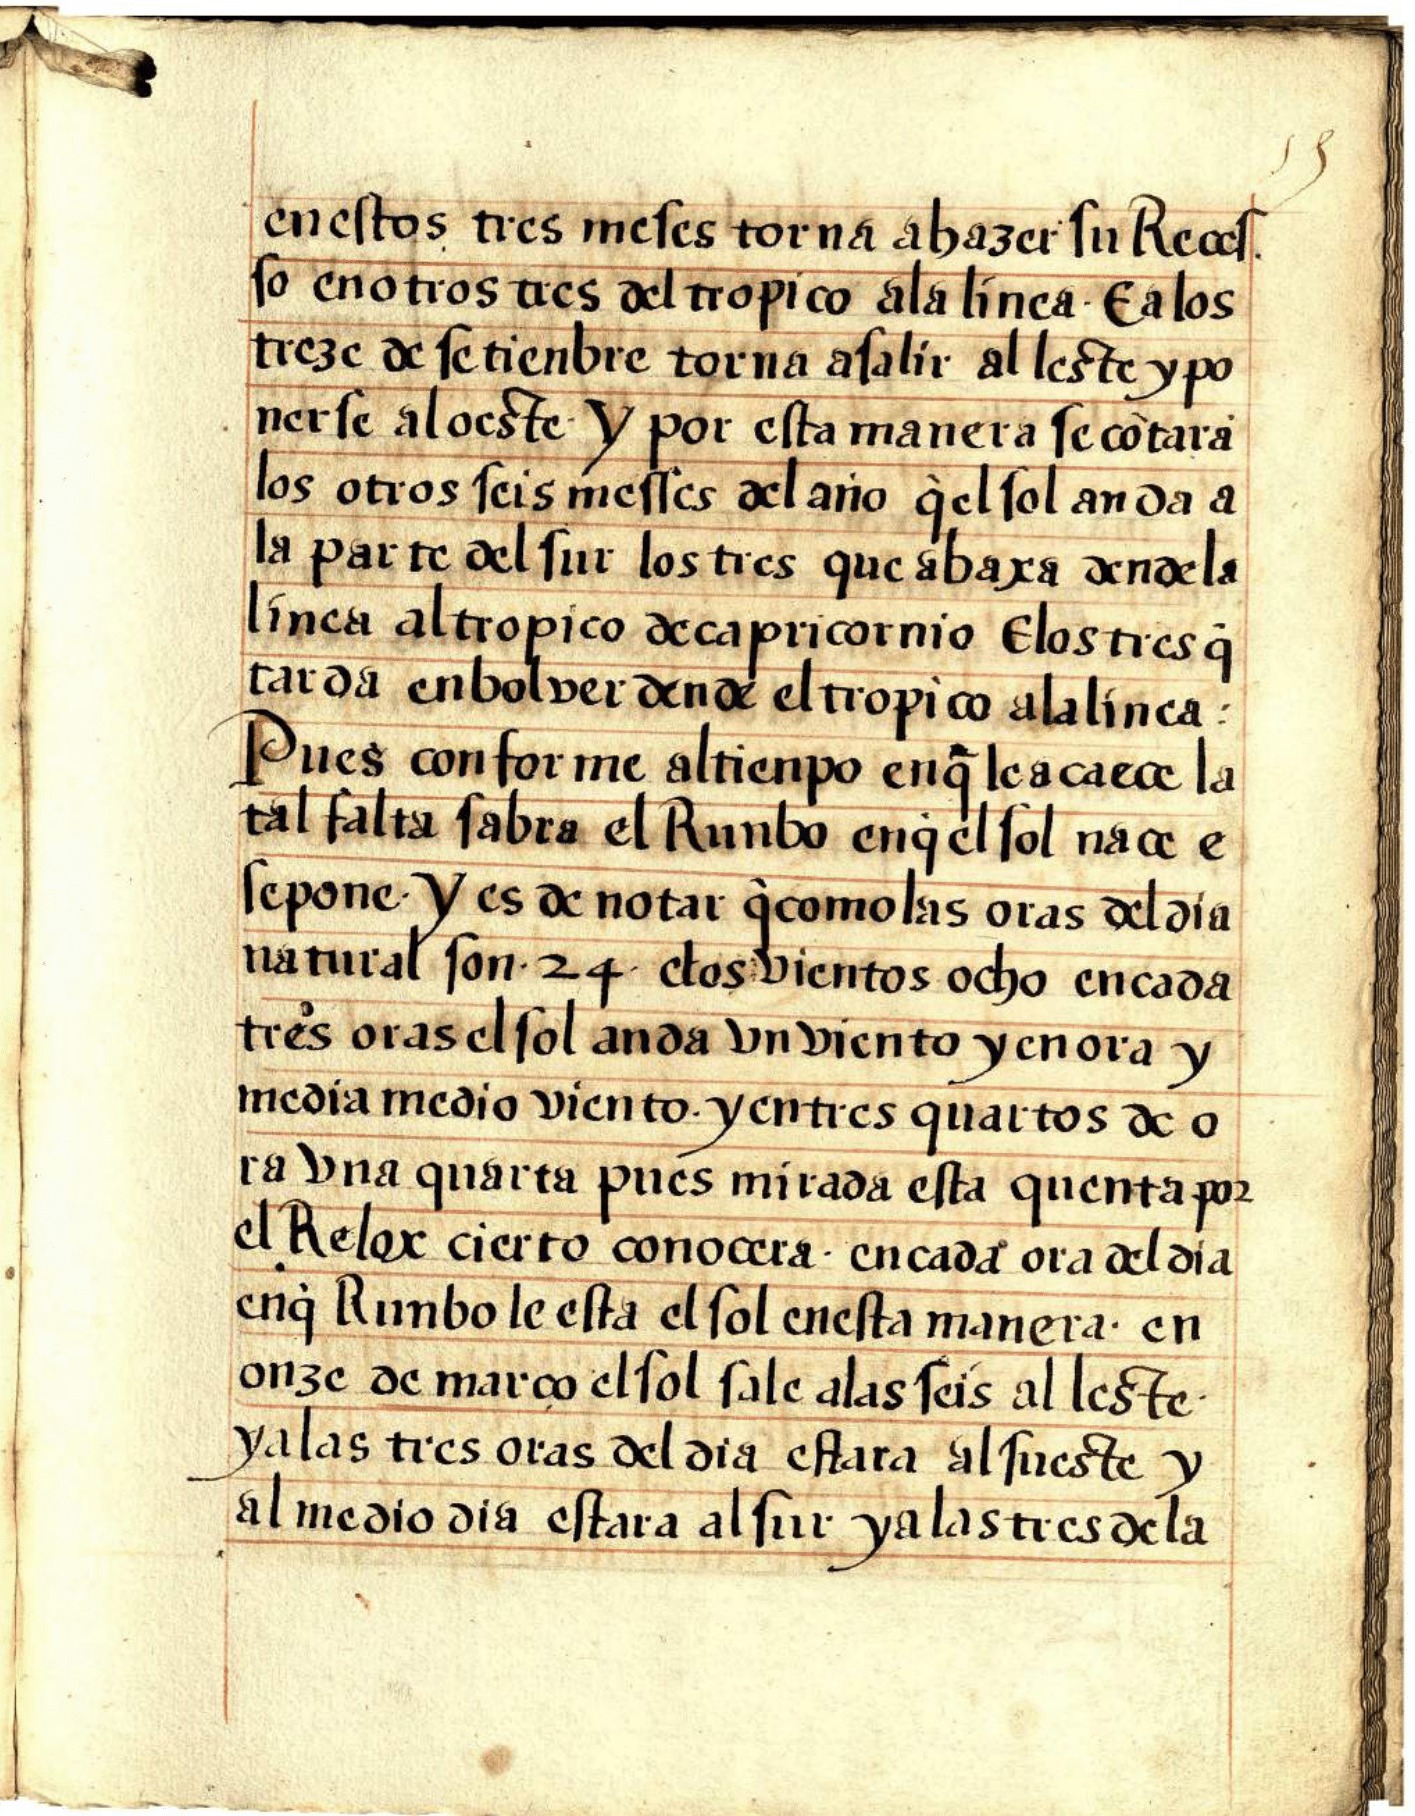 15
en estos tres meses torna a hazer su Reces.
so en otros tres del tropico a la linea. E a los
treze de setienbre torna a salir al leste y po
nerse al oeste. Y por esta manera se cõtara
los otros seis messes del año q̃ el sol anda a
la parte del sur los tres que abaxa dende la
linea al tropico de capricornio E los tres q̃
tarda en bolver dende el tropico a la linea:
Pues conforme al tienpo en q̃ le acaece la
tal falta sabra el Runbo en q̃ el sol nace e
se pone. Y es de notar q̃ como las oras del dia
natural son. 24. e los vientos ocho en cada
tres oras el sol anda vn viento y en ora y
media medio viento. y en tres quartos de o
ra vna quarta pues mirada esta quenta por
el Relox cierto conocera. en cada ora del dia
en q̃ Runbo le esta el sol en esta manera. en
onze de março el sol sale a las seis al leste.
y a las tres oras del dia estara al sueste y
al medio dia estara al sur y a las tres de la